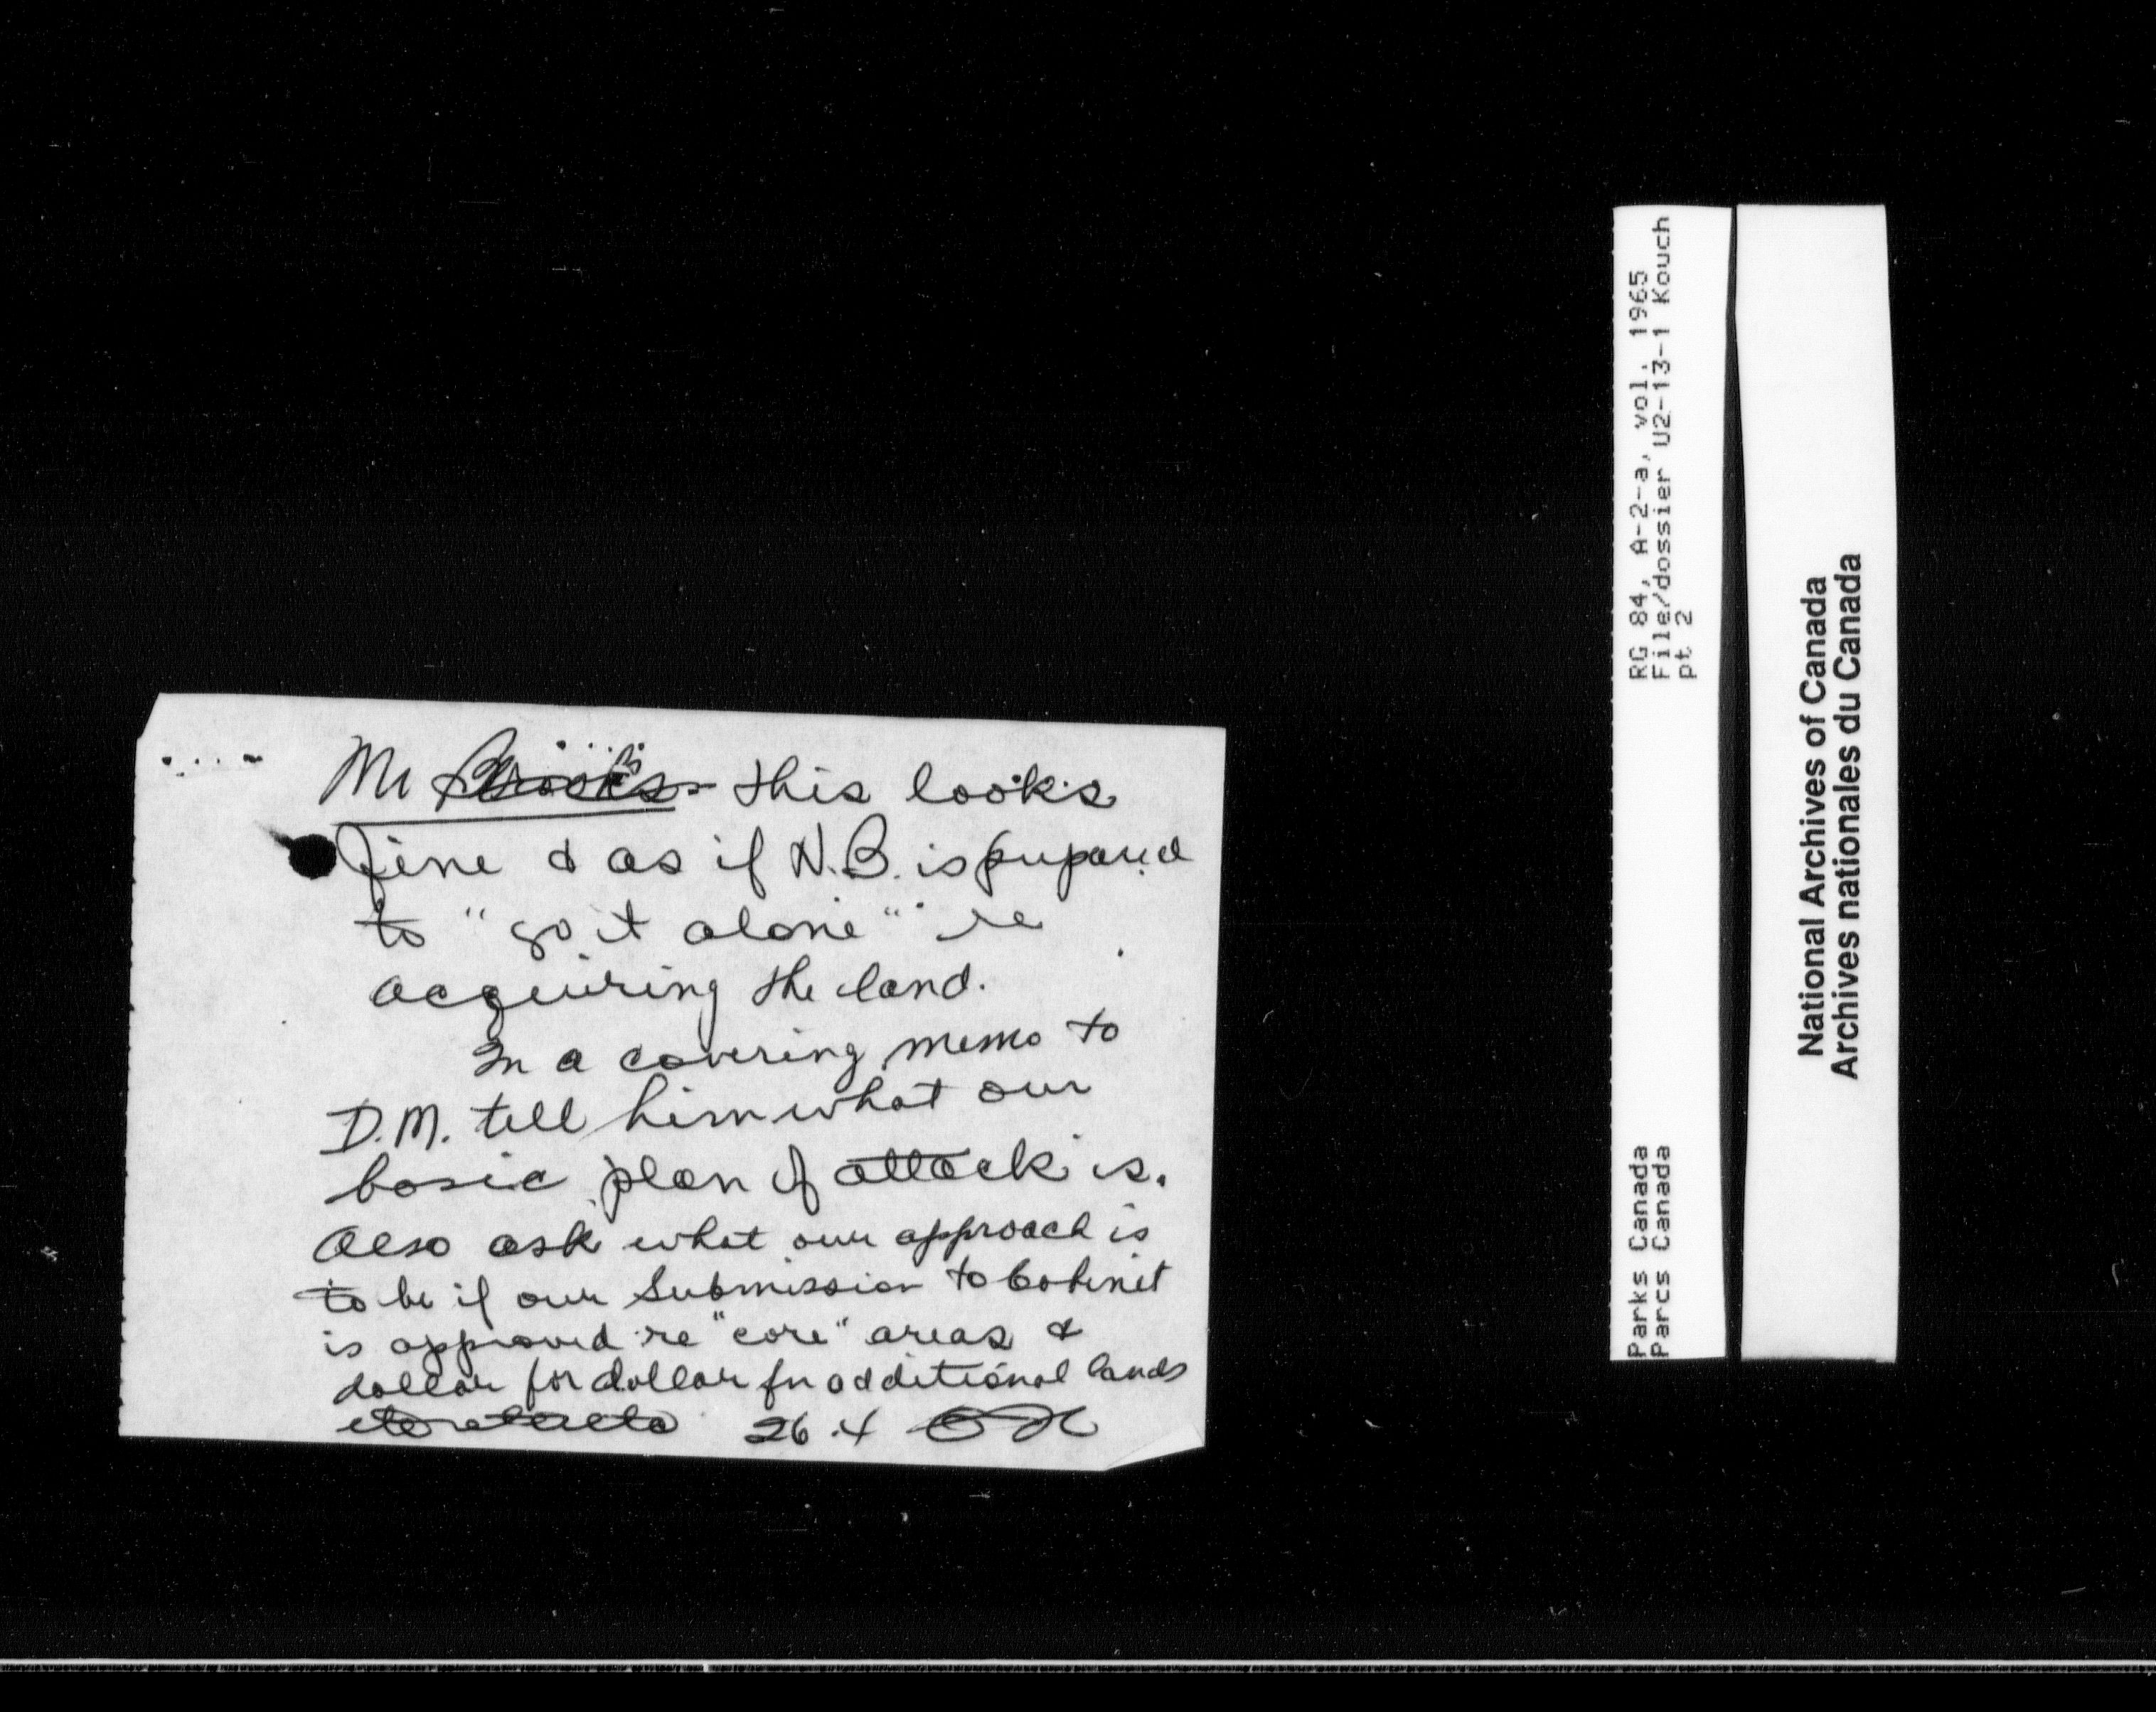 Mr Brooks this looks
fine & as if N.B. is prepared
to "go it alone" re
acquiring the land.
In a covering memo to
D.M. tell him what our
basic plan of attack is.
Also ask what our approach is
to be if our submission to Cabinet
is approved re "core" areas &
dollar for dollar for additional lands
26.4
RG 84, A-2-a, vol. 1965
File/dossier U2-13-1 Kouch
pt 2
Parks Canada
Parcs Canada
National Archives of Canada
Archives nationales du Canada